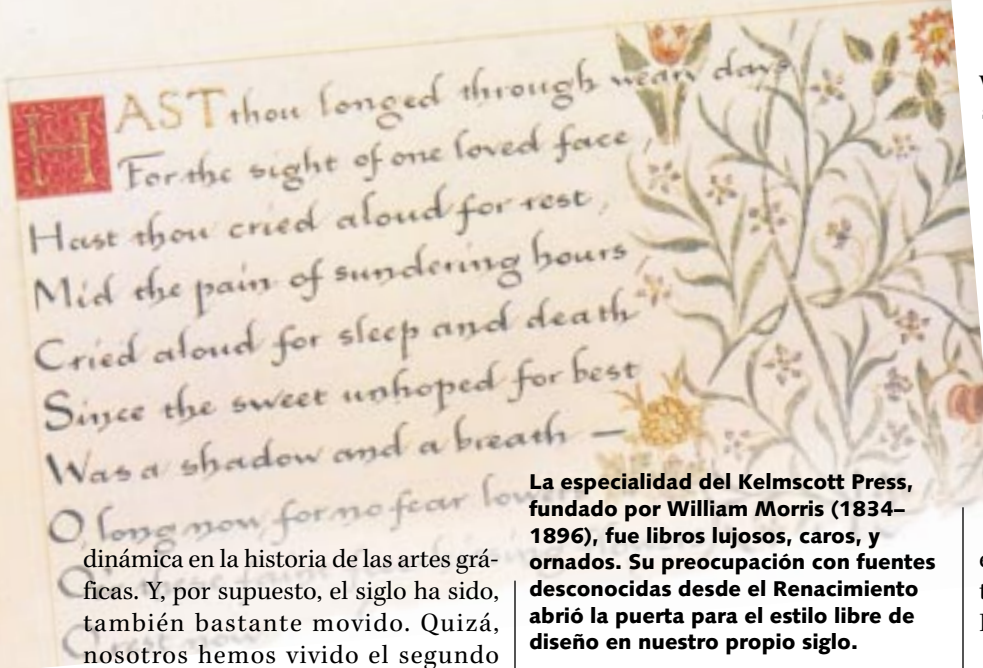 HAST thou longed through weary days
For the sight of one loved face,
Hast thou cried aloud for rest,
Mid the pain of sundering hours,
Cried aloud for sleep and death
Since the sweet unhoped for best
Was a shadow and a breath —
O long now, for no fear
dinámica en la historia de las artes grá-
ficas. Y, por supuesto, el siglo ha sido,
también bastante movido. Quizá,
nosotros hemos vivido el segundo
La especialidad del Kelmscott Press,
fundado por William Morris (1834–
1896), fue libros lujosos, caros, y
ornados. Su preocupación con fuentes
desconocidas desde el Renacimiento
abrió la puerta para el estilo libre de
diseño en nuestro propio siglo.